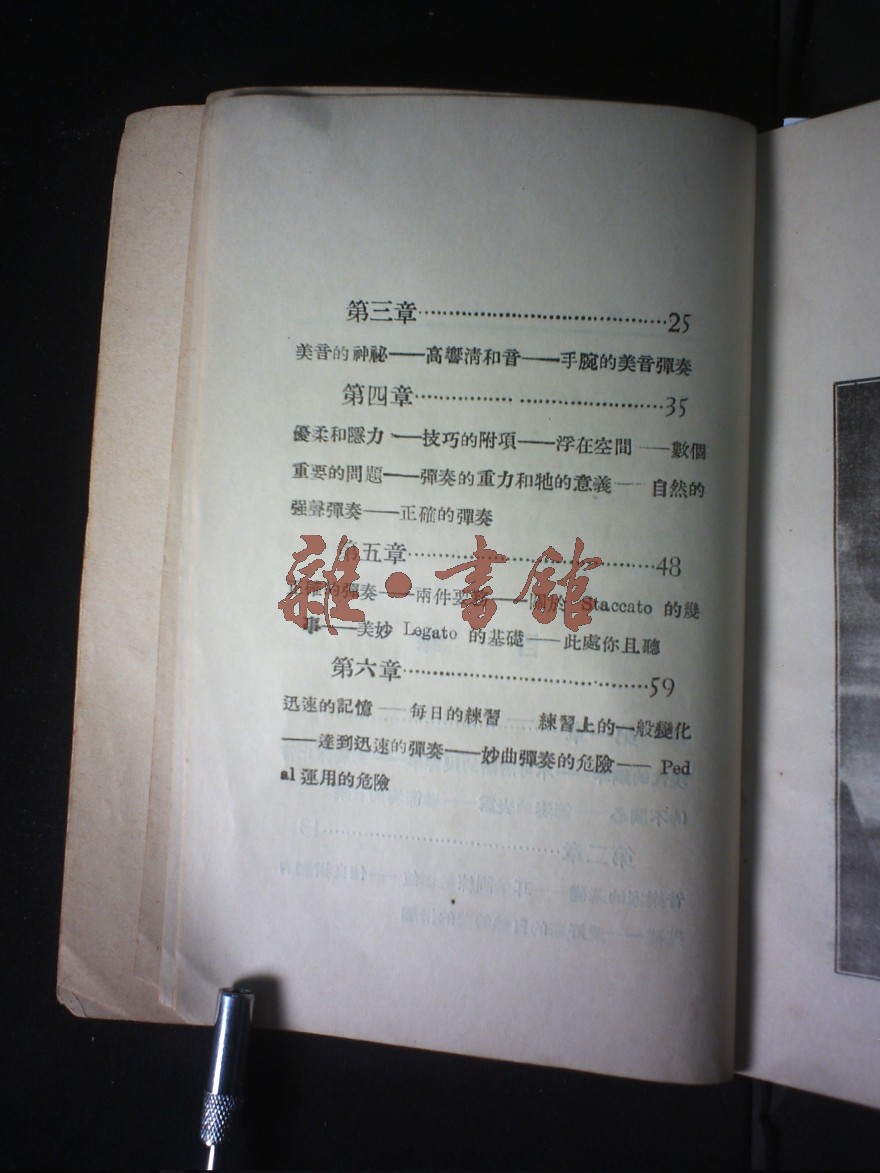 第三章……………………………………25
美音的神祕——高響清和音——手腕的美音彈奏
第四章……………………………………35
優柔和隱力——技巧的附項——浮在空間——數個
重要的問題——彈奏的重力和牠的意義——自然的
强聲彈奏——正確的彈奏
第五章……………………………………48
正確的彈奏——兩件要務——關於 Staccato 的幾
事——美妙 Legato 的基礎——此處你且聽
第六章……………………………………59
迅速的記憶——每日的練習——練習上的一般變化
——達到迅速的彈奏——妙曲彈奏的危險——Ped
al 運用的危險
雜·書館